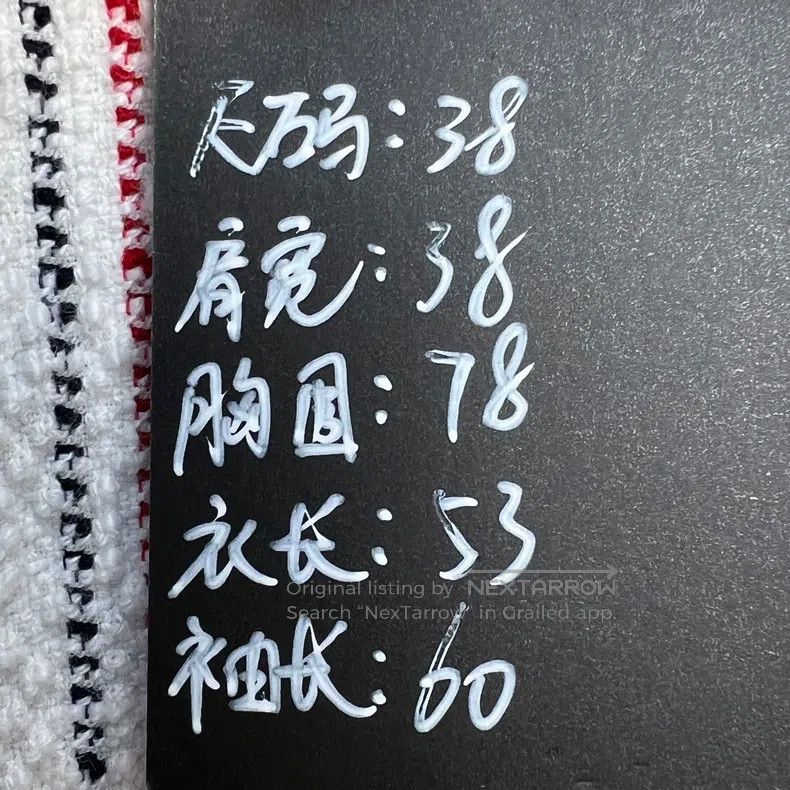 尺码:38
肩宽:38
胸围:78
衣长:53
Original listing by NEXTARROW
Search "NexTarrow" in Grailed app
袖长:60